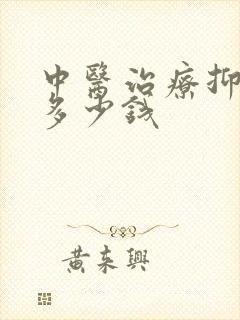 中醫治療抑
多少錢
黃來興